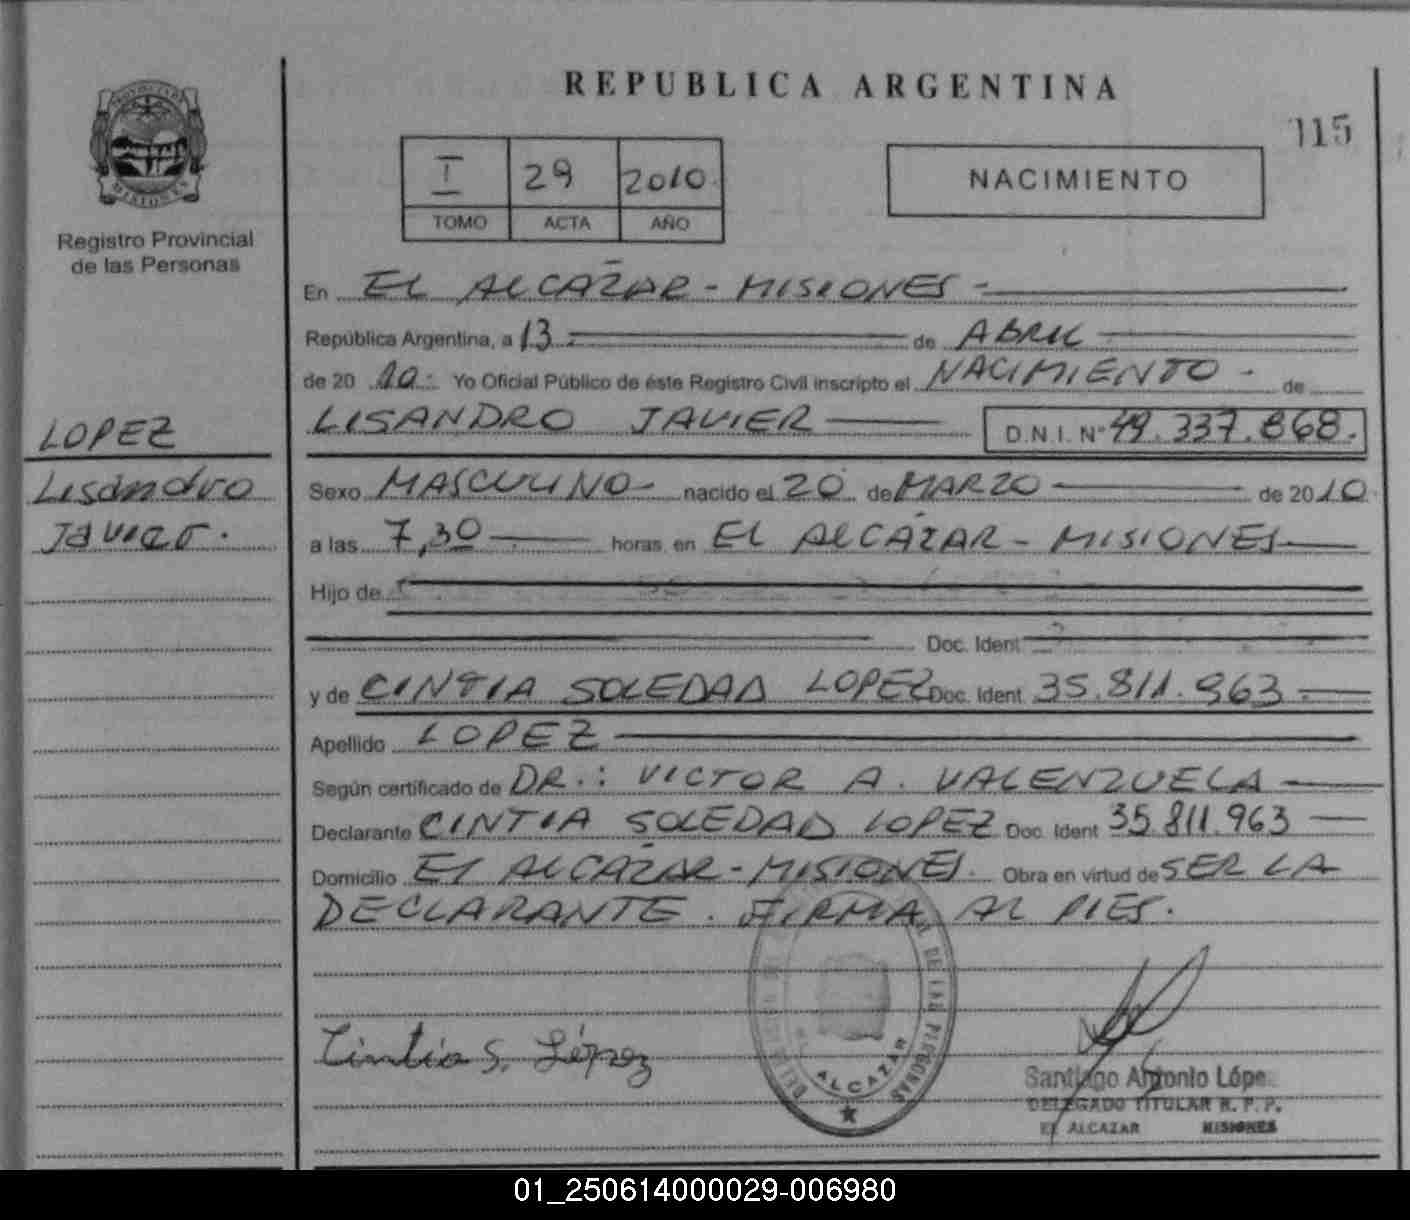 REPUBLICA ARGENTINA
115
PROVINCIA DE
MISIONES
Registro Provincial
de las Personas
I 29 2010
TOMO ACTA AÑO
NACIMIENTO
En EL ALCAZAR - MISIONES -
República Argentina, a 13 de ABRIL
de 20 10 Yo Oficial Público de éste Registro Civil inscripto el NACIMIENTO - de
LISANDRO JAVIER D.N.I. Nº 49.337.868.
LOPEZ
Lisandro
Javier.
Sexo MASCULINO - nacido el 20 de MARZO de 2010
a las 7,30 horas en EL ALCAZAR - MISIONES
Hijo de
Doc. Ident
y de CINTIA SOLEDAD LOPEZ Doc. Ident. 35.811.963
Apellido LOPEZ
Según certificado de DR.: VICTOR A. VALENZUELA
Declarante CINTIA SOLEDAD LOPEZ Doc. Ident 35.811.963
Domicilio EL ALCAZAR - MISIONES. Obra en virtud de SER LA
DECLARANTE. FIRMA AL PIES.
DE LAS PERSONAS
ALCAZAR
Cintia S. López
Santiago Antonio Lópe
DELEGADO TITULAR R. P. P.
EL ALCAZAR MISIONES
01_250614000029-006980